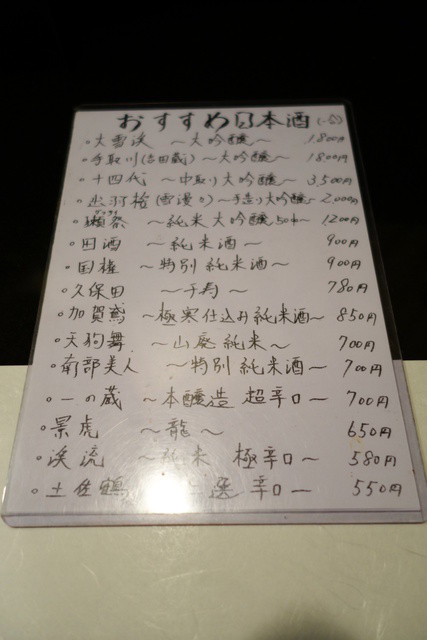 おすすめ日本酒(一合)
◦大雪渓 〜大吟醸〜 1800円
◦手取川(吉田蔵)〜大吟醸〜 1800円
◦十四代 〜中取り大吟醸〜 3,500円
◦出羽桜(雪漫々)〜手造り大吟醸〜 2,000円
◦獺祭 〜純米大吟醸50〜 1200円
◦田酒 〜純米酒〜 900円
◦国権 〜特別純米酒〜 900円
◦久保田 〜千寿〜 780円
◦加賀鳶 〜極寒仕込み純米酒〜 850円
◦天狗舞 〜山廃純米〜 700円
◦南部美人 〜特別純米酒〜 700円
◦一の蔵 〜本醸造 超辛口〜 700円
◦景虎 〜龍〜 650円
◦渓流 〜純米 極辛口〜 580円
◦土佐鶴 選 辛口〜 550円